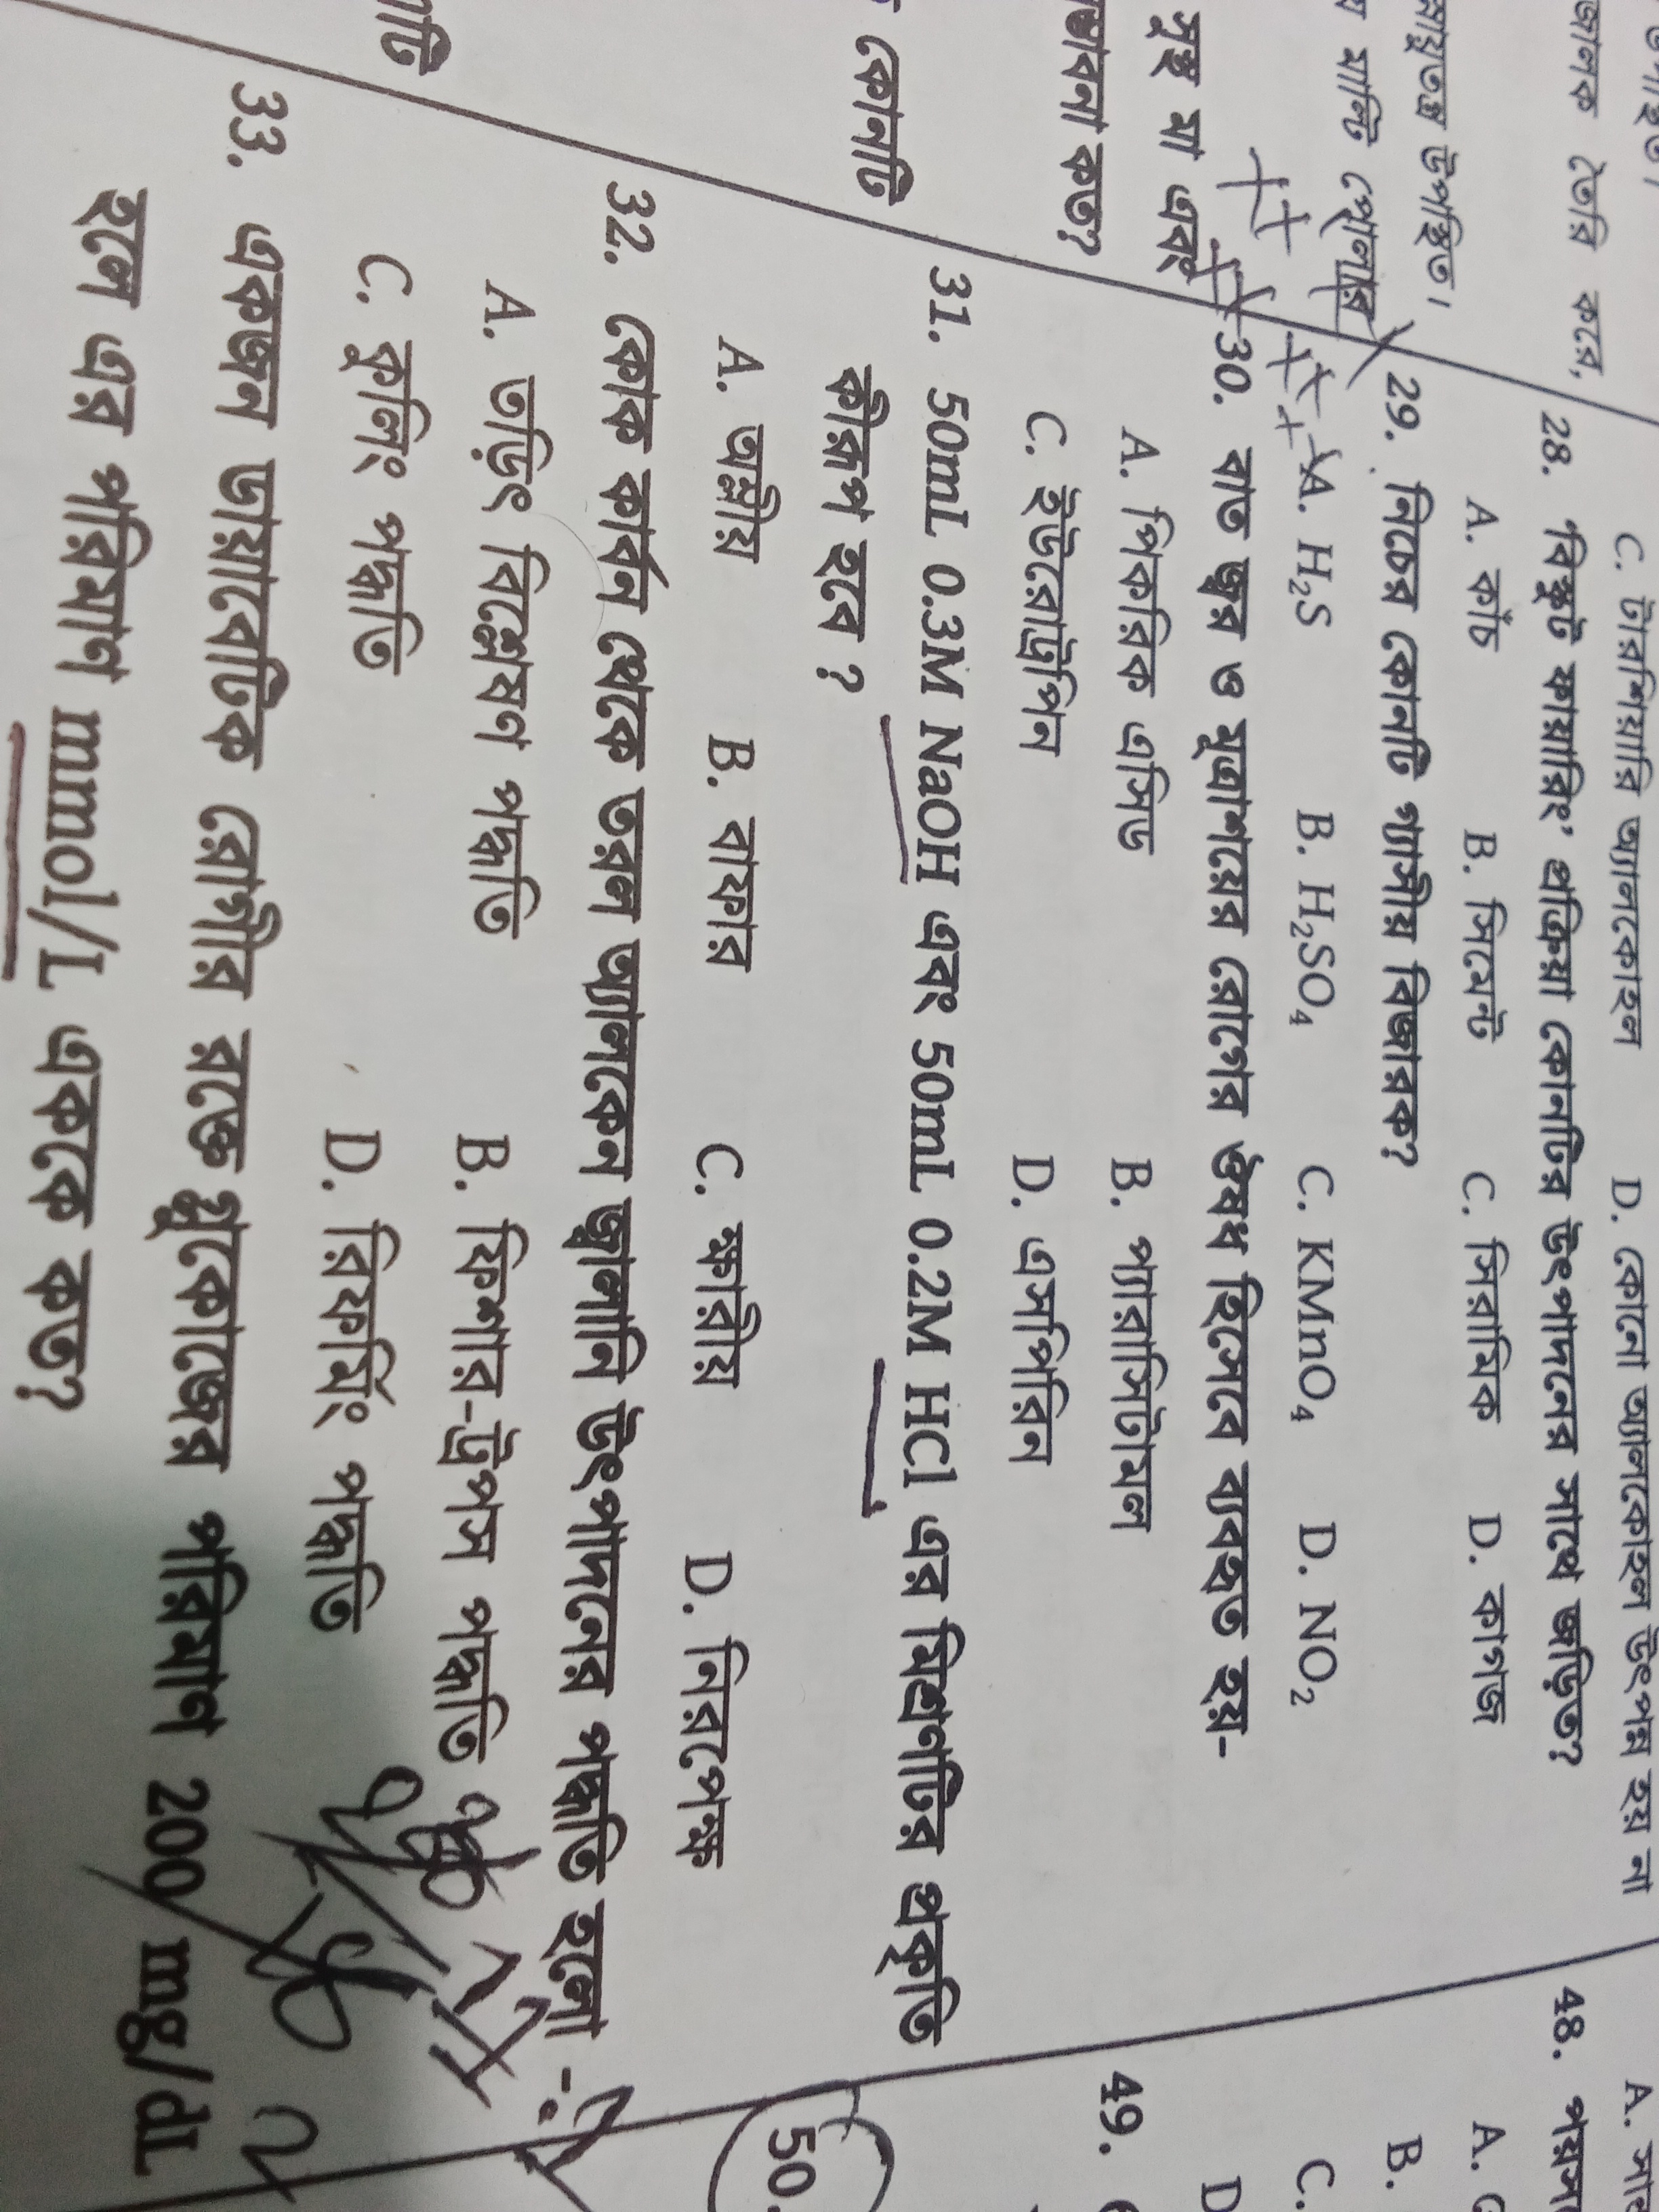 উপস্থিত।
জালক তৈরি করে,
স্নায়ুতন্ত্র উপস্থিত।
য যানটি পোলার
সুস্থ মা এবং
ম্ভাবনা কত?
কোনটি
নাটি
C. টারশিয়ারি অ্যালকোহল D. কোনো অ্যালকোহল উৎপন্ন হয় না
28. 'বিস্কুট ফায়ারিং' প্রক্রিয়া কোনটির উৎপাদনের সাথে জড়িত?
A. কাঁচ B. সিমেন্ট C. সিরামিক D. কাগজ
29. নিচের কোনটি গ্যাসীয় বিজারক?
A. H₂S B. H₂SO₄ C. KMnO₄ D. NO₂
30. বাত জ্বর ও মূত্রাশয়ের রোগের ঔষধ হিসেবে ব্যবহৃত হয়-
A. পিকরিক এসিড B. প্যারাসিটামল
C. ইউরোট্রপিন D. এসপিরিন
31. 50mL 0.3M NaOH এবং 50mL 0.2M HCl এর মিশ্রণটির প্রকৃতি
কীরূপ হবে ?
A. অম্লীয় B. বাফার C. ক্ষারীয় D. নিরপেক্ষ
32. কোক কার্বন থেকে তরল অ্যালকেন জ্বালানি উৎপাদনের পদ্ধতি হলো -
A. তড়িৎ বিশ্লেষণ পদ্ধতি B. ফিশার-ট্রপস পদ্ধতি
C. কুলিং পদ্ধতি D. রিফর্মিং পদ্ধতি
33. একজন ডায়াবেটিক রোগীর রক্তে গ্লুকোজের পরিমাণ 200 mg/dL
হলে এর পরিমাণ mmol/L এককে কত?
48. পয়সা
A. G
B.
C.
D
49.
50.